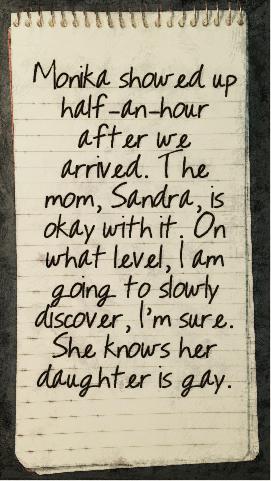 Monika showed up
half-an-hour
after we
arrived. The
mom, Sandra, is
okay with it. On
what level, I am
going to slowly
discover, I'm sure.
She knows her
daughter is gay.